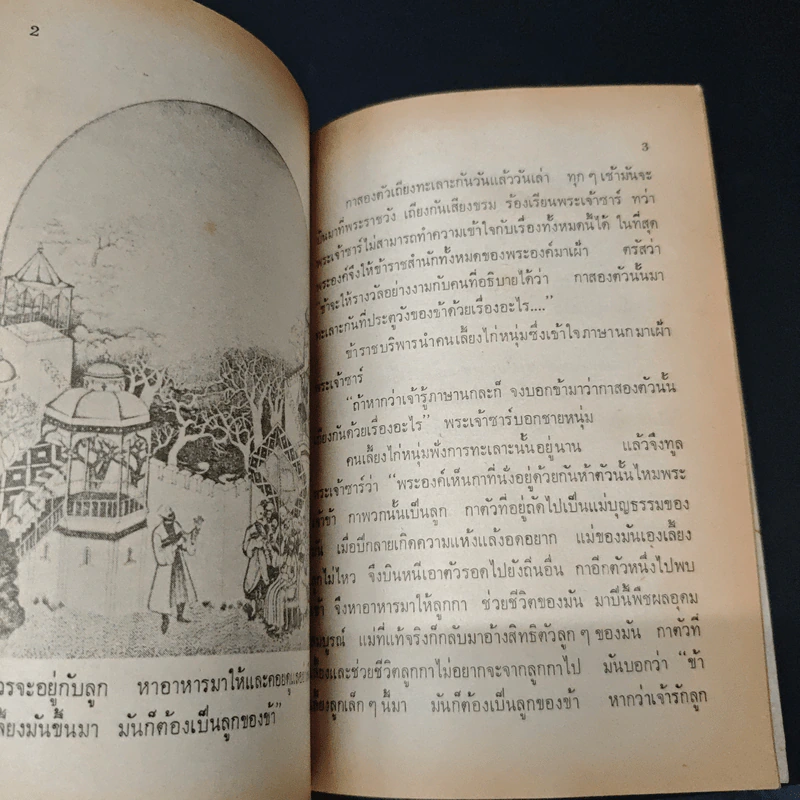 2
วรจะอยู่กับลูก หาอาหารมาให้และคอยดูแล
เลี้ยงมันขึ้นมา มันก็ต้องเป็นลูกของข้า”
3
กาสองตัวเถียงทะเลาะกันวันแล้ววันเล่า ทุก ๆ เช้ามันจะ
บินมาที่พระราชวัง เถียงกันเสียงขรม ร้องเรียนพระเจ้าซาร์ ทว่า
พระเจ้าซาร์ไม่สามารถทำความเข้าใจกับเรื่องทั้งหมดนี้ได้ ในที่สุด
พระองค์จึงให้ข้าราชสำนักทั้งหมดของพระองค์มาเฝ้า ตรัสว่า
“ข้าจะให้รางวัลอย่างงามกับคนที่อธิบายได้ว่า กาสองตัวนั้นมา
ทะเลาะกันที่ประตูวังของข้าด้วยเรื่องอะไร....”
ข้าราชบริพารนำคนเลี้ยงไก่หนุ่มซึ่งเข้าใจภาษานกมาเฝ้า
พระเจ้าซาร์
“ถ้าหากว่าเจ้ารู้ภาษานกละก็ จงบอกข้ามาว่ากาสองตัวนั้น
เถียงกันด้วยเรื่องอะไร” พระเจ้าซาร์บอกชายหนุ่ม
คนเลี้ยงไก่หนุ่มฟังการทะเลาะนั้นอยู่นาน แล้วจึงทูล
พระเจ้าซาร์ว่า “พระองค์เห็นกาที่นั่งอยู่ด้วยกันห้าตัวนั้นไหมพระ
เจ้าข้า กาพวกนั้นเป็นลูก กาตัวที่อยู่ถัดไปเป็นแม่บุญธรรมของ
มัน เมื่อปีกลายเกิดความแห้งแล้งอดอยาก แม่ของมันเองเลี้ยง
ลูกไม่ไหว จึงบินหนีเอาตัวรอดไปยังถิ่นอื่น กาอีกตัวหนึ่งไปพบ
เข้า จึงหาอาหารมาให้ลูกกา ช่วยชีวิตของมัน มาปีนี้พืชผลอุดม
สมบูรณ์ แม่ที่แท้จริงก็กลับมาอ้างสิทธิตัวลูก ๆ ของมัน กาตัวที่
เลี้ยงและช่วยชีวิตลูกกาไม่อยากจะจากลูกกาไป มันบอกว่า “ข้า
เลี้ยงลูกเล็ก ๆ นี้มา มันก็ต้องเป็นลูกของข้า หากว่าเจ้ารักลูก